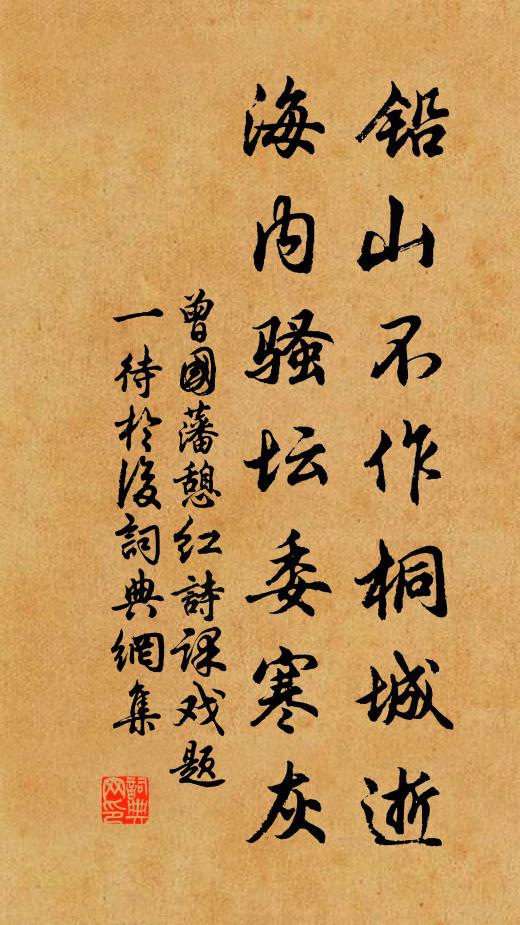 铅山不作桐城逝
海内骚坛委寒灰
曾國藩憩红詩课戏题
一待於後詞典網集
詞典网印